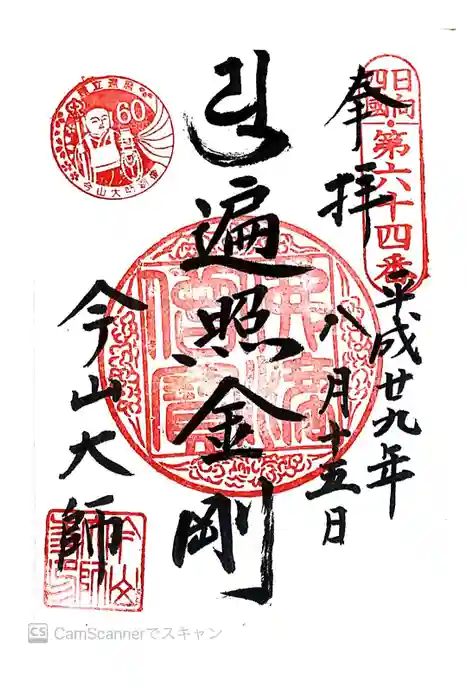 日向
四國・第六十四番
奉拝
平成廿九年
八月十五日
遍照金剛
今山大師
60
今山大師
CS CamScannerでスキャン